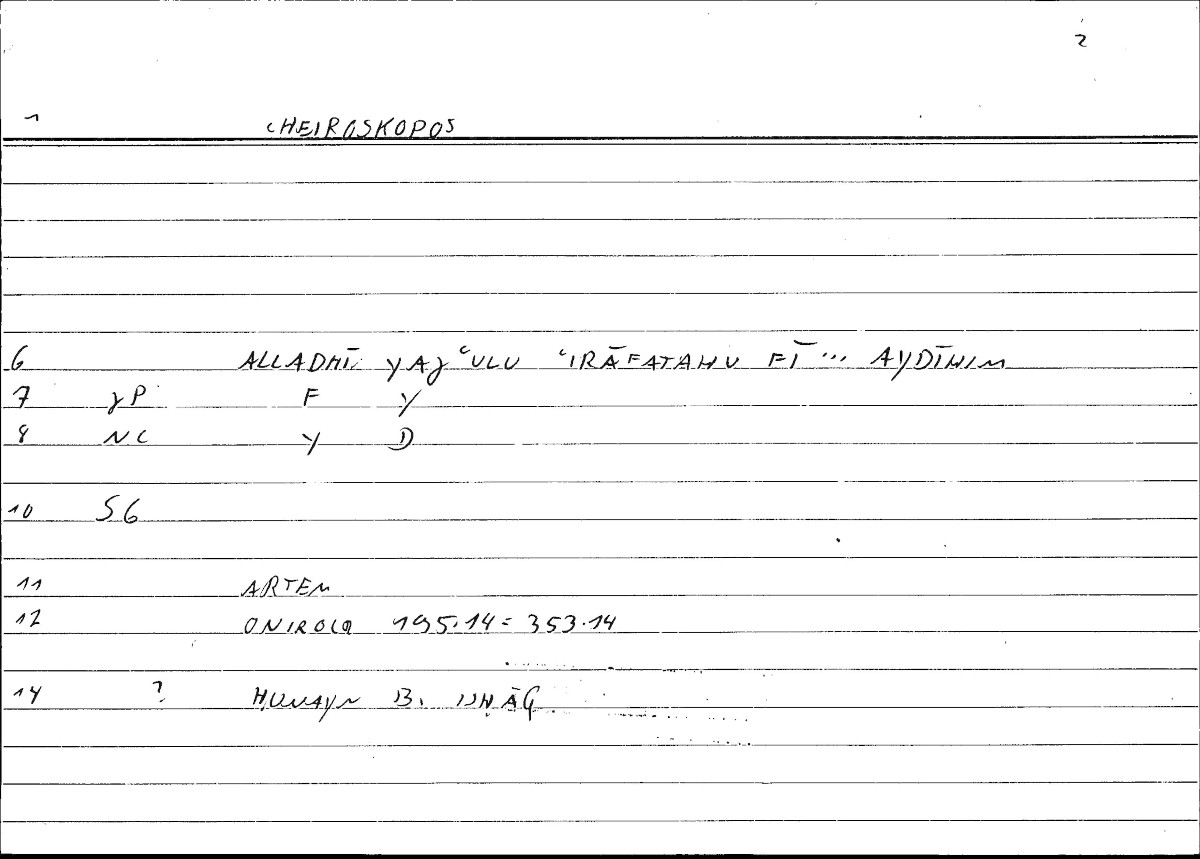 2
1 CHEIROSKOPOS
6 ALLADHĪ YAJʿULU ʿIRĀFATAHU FĪ ... AYDĪHIM
7 JP F Y
8 NC Y D
10 SG
11 ARTEM
12 ONIROCR 195.14 = 353.14
14 ? ḤUNAYN B. ISḤĀQ